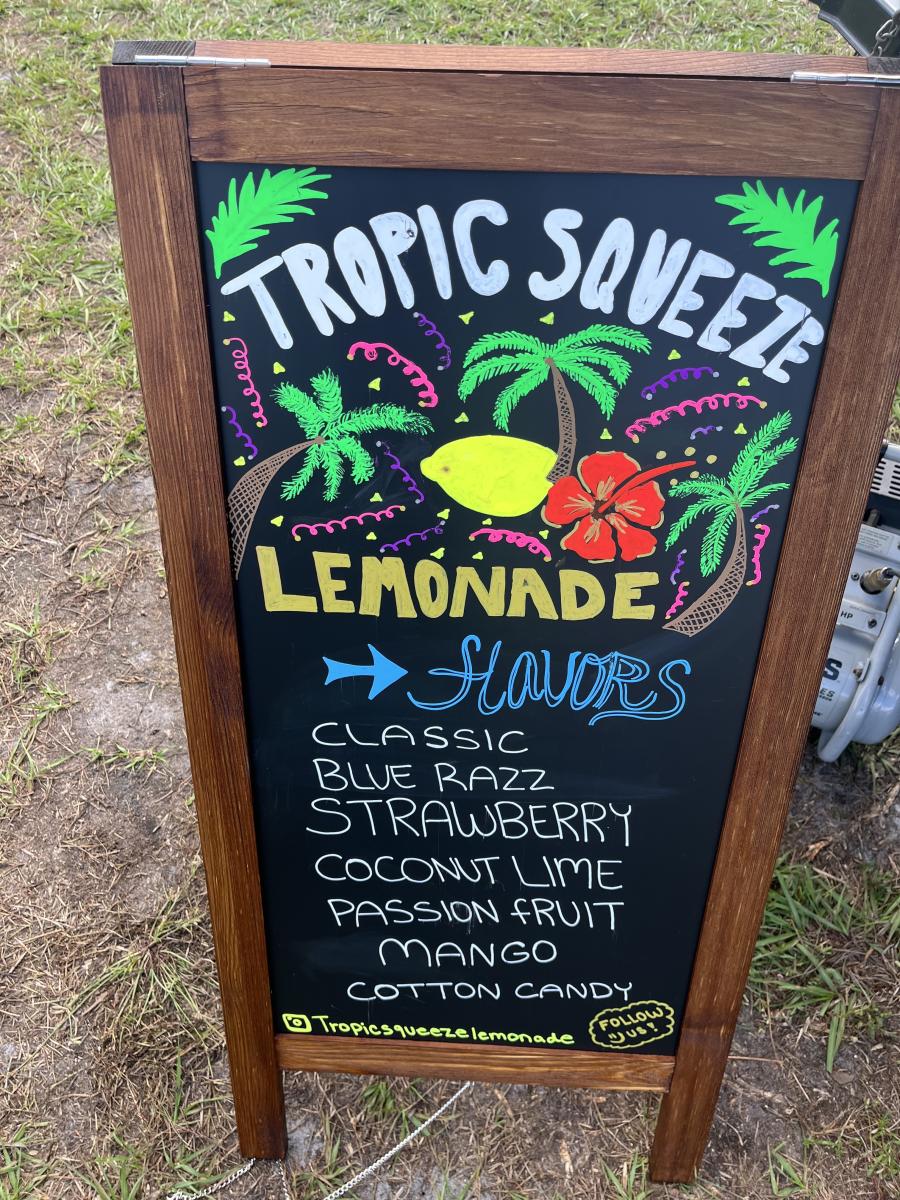 TROPIC SQUEEZE
LEMONADE
FLAVORS
CLASSIC
BLUE RAZZ
STRAWBERRY
COCONUT LIME
PASSION FRUIT
MANGO
COTTON CANDY
Tropicsqueezelemonade
FOLLOW
US!
HP